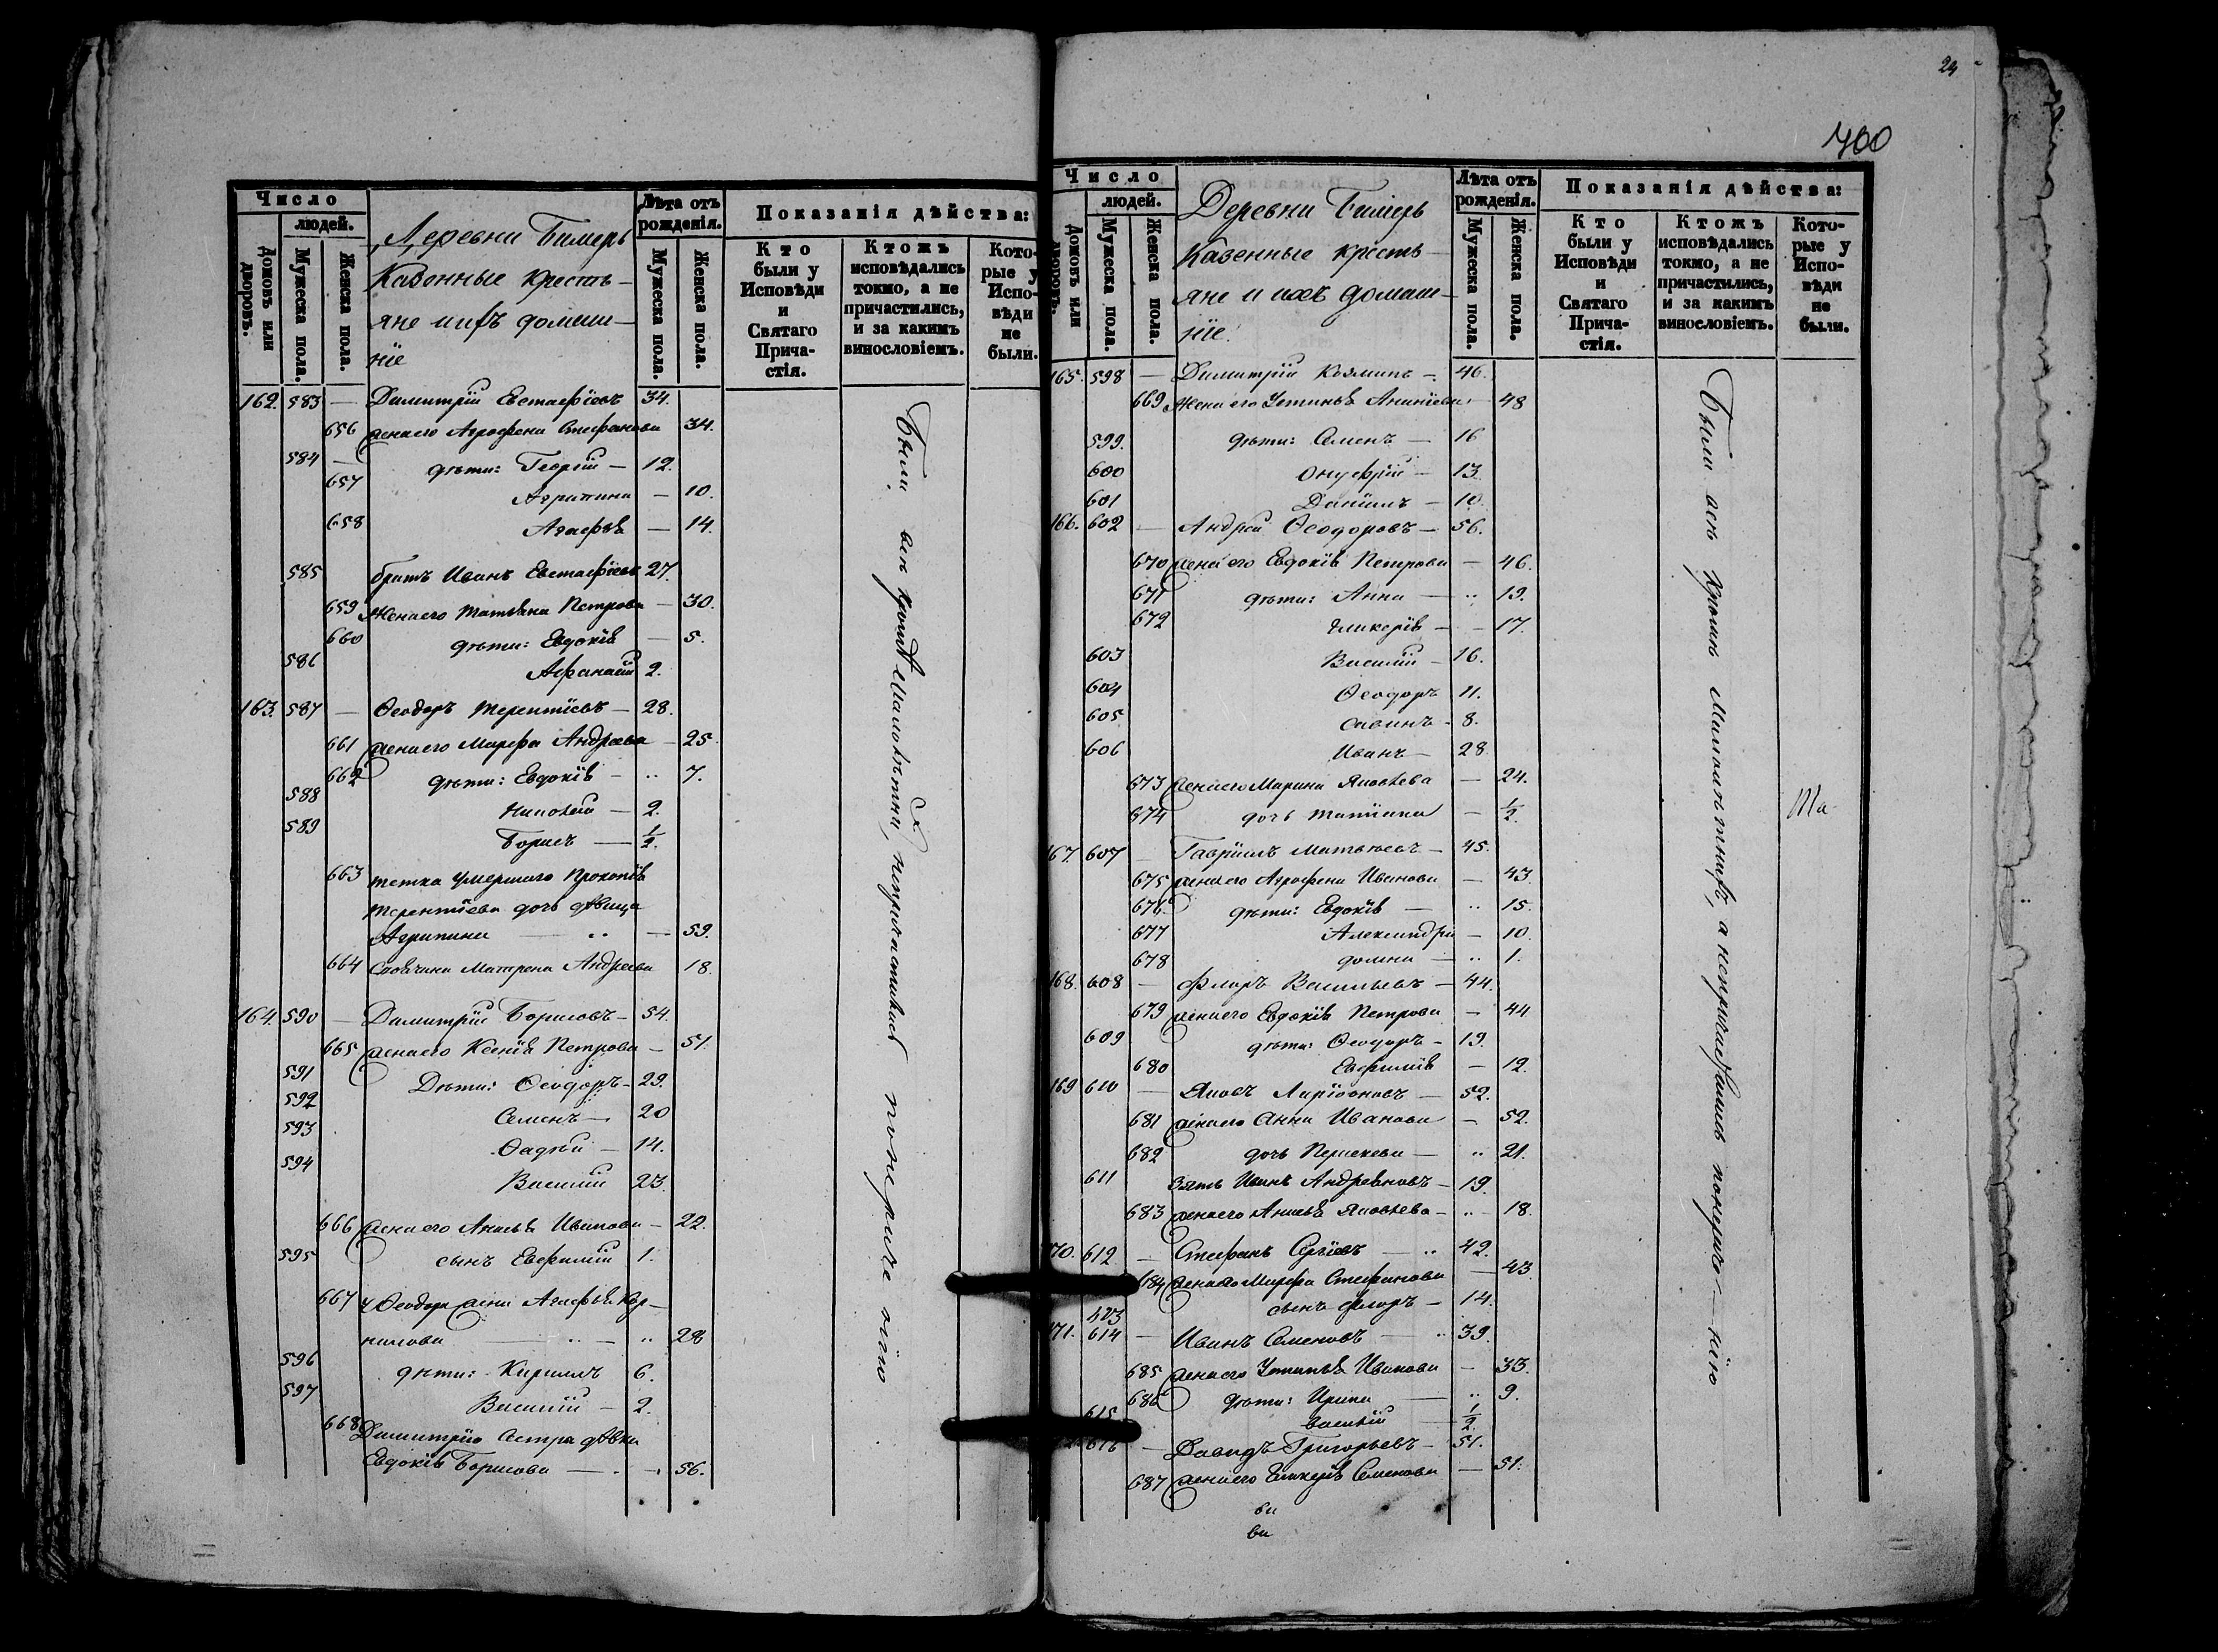 Число
людей.
Домовъ или дворовъ.
Мужеска пола.
Женска пола.
Деревни Бимерь
Казенные кресть-
яне и ихъ домаш-
ніе
Лѣта отъ рожденія.
Мужеска пола.
Женска пола.
Показанія дѣйства:
Кто были у Исповѣди и Святаго Прича- стія.
Ктожъ исповѣдались токмо, а не причастились, и за какимъ винословіемъ.
Кото- рые у Испо- вѣди не были.
162. 583 — Димитрій Евстафіевъ 34.
656 жена его Агрофена Стефанова 34.
584 — дѣти: Георгій — 12.
657 Агрипина — 10.
658 Агафья — 14.
585 братъ Иванъ Евстафіевъ 27.
659 Жена его Татьяна Петрова — 30.
660 дѣти: Евдокія — 5.
586 Афанасій 2.
163. 587 — Ѳеодоръ Терентіевъ — 28.
661 жена его Марфа Андреева — 25.
662 дѣти: Евдокія — .. 7.
588 Николай — 2.
589 Борисъ — 1/2.
663 тетка умершаго Прокопія
Терентіева дочь дѣвица
Агрипина — .. — 59.
664 Матрена Андреева 18.
164. 590 — Димитрій Борисовъ — 54.
665 жена его Ксенія Петрова — 51.
591 Дѣти: Ѳеодоръ — 29.
592 Семенъ — 20
593 Ѳадѣй — 14.
594 Василій 23.
666 жена его Анисья Иванова — 22.
595 сынъ Евфимій 1.
667 у Ѳеодора жена Агафья Кор-
нилова — .. — .. 28
596 дѣти: Кириллъ 6.
597 Василій — 2.
668 Димитрія сестра дѣвка
Евдокія Борисова — . — 56.
Были всѣ кромѣ малолѣтнихъ, непричастились понерачению
24
400
Число
людей.
Домовъ или дворовъ.
Мужеска пола.
Женска пола.
Деревни Бимерь
Казенные кресть-
яне и ихъ домаш-
ніе.
Лѣта отъ рожденія.
Мужеска пола.
Женска пола.
Показанія дѣйства:
Кто были у Исповѣди и Святаго Прича- стія.
Ктожъ исповѣдались токмо, а не причастились, и за какимъ винословіемъ.
Кото- рые у Испо- вѣди не были.
165. 598 — Димитрій Козминъ — 46.
669 Жена его Устинья Ананіева — 48
599. дѣти: Семенъ — 16
600 Онуфрій — 13.
601 Даніилъ — 10.
166. 602 — Андрей Ѳеодоровъ — 56.
670 жена его Евдокія Петрова — 46.
671 дѣти: Анна — .. 19.
672 Гликерія — — 17.
603 Василій — 16.
604 Ѳеодоръ 11.
605 Савинъ — 8.
606 Иванъ — 28
673 жена его Марина Яковлева — 24.
674 дочь Татіана — 1/2.
167. 607 — Гавріилъ Матвѣевъ — 45.
675 жена его Агрофена Иванова — 43.
676. дѣти: Евдокія — .. 15.
677 Александра — 10.
678 Домна — .. 1.
168. 608 — Флоръ Васильевъ — 44.
679 жена его Евдокія Петрова — 44
609 дѣти: Ѳеодоръ — 19.
680 Евфимія — 12.
169 610 — Яковъ Ларіоновъ — 52.
681 жена его Анна Иванова — 52.
682 дочь Парасковья — .. 21.
611 Зять Иванъ Андреяновъ — 19.
683 жена его Анисья Яковлева — .. — 18.
170. 612 — Стефанъ Сергіевъ — .. 42.
684 жена его Марфа Стефанова — 43.
613 сынъ Флоръ — 14.
171. 614 — Иванъ Семеновъ — .. 39.
685 жена его Устинья Иванова — 33.
686 дѣти: Ирина — .. 9.
615 Василій — 1/2.
616 — Давидъ Григорьевъ — 51.
687 жена его Гликерія Семенова — 51.
ви
ви
Были всѣ кромѣ малолѣтнихъ, а непричащались понерачению
Та